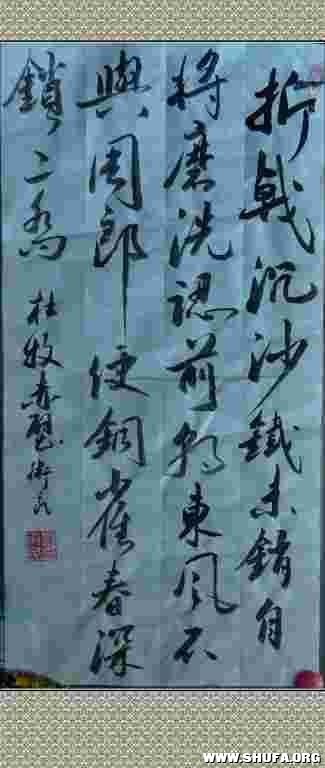 折戟沉沙鐵未銷自
將磨洗認前朝東風不
與周郎便銅雀春深
鎖二喬
杜牧赤壁
WWW.SHUFA.ORG